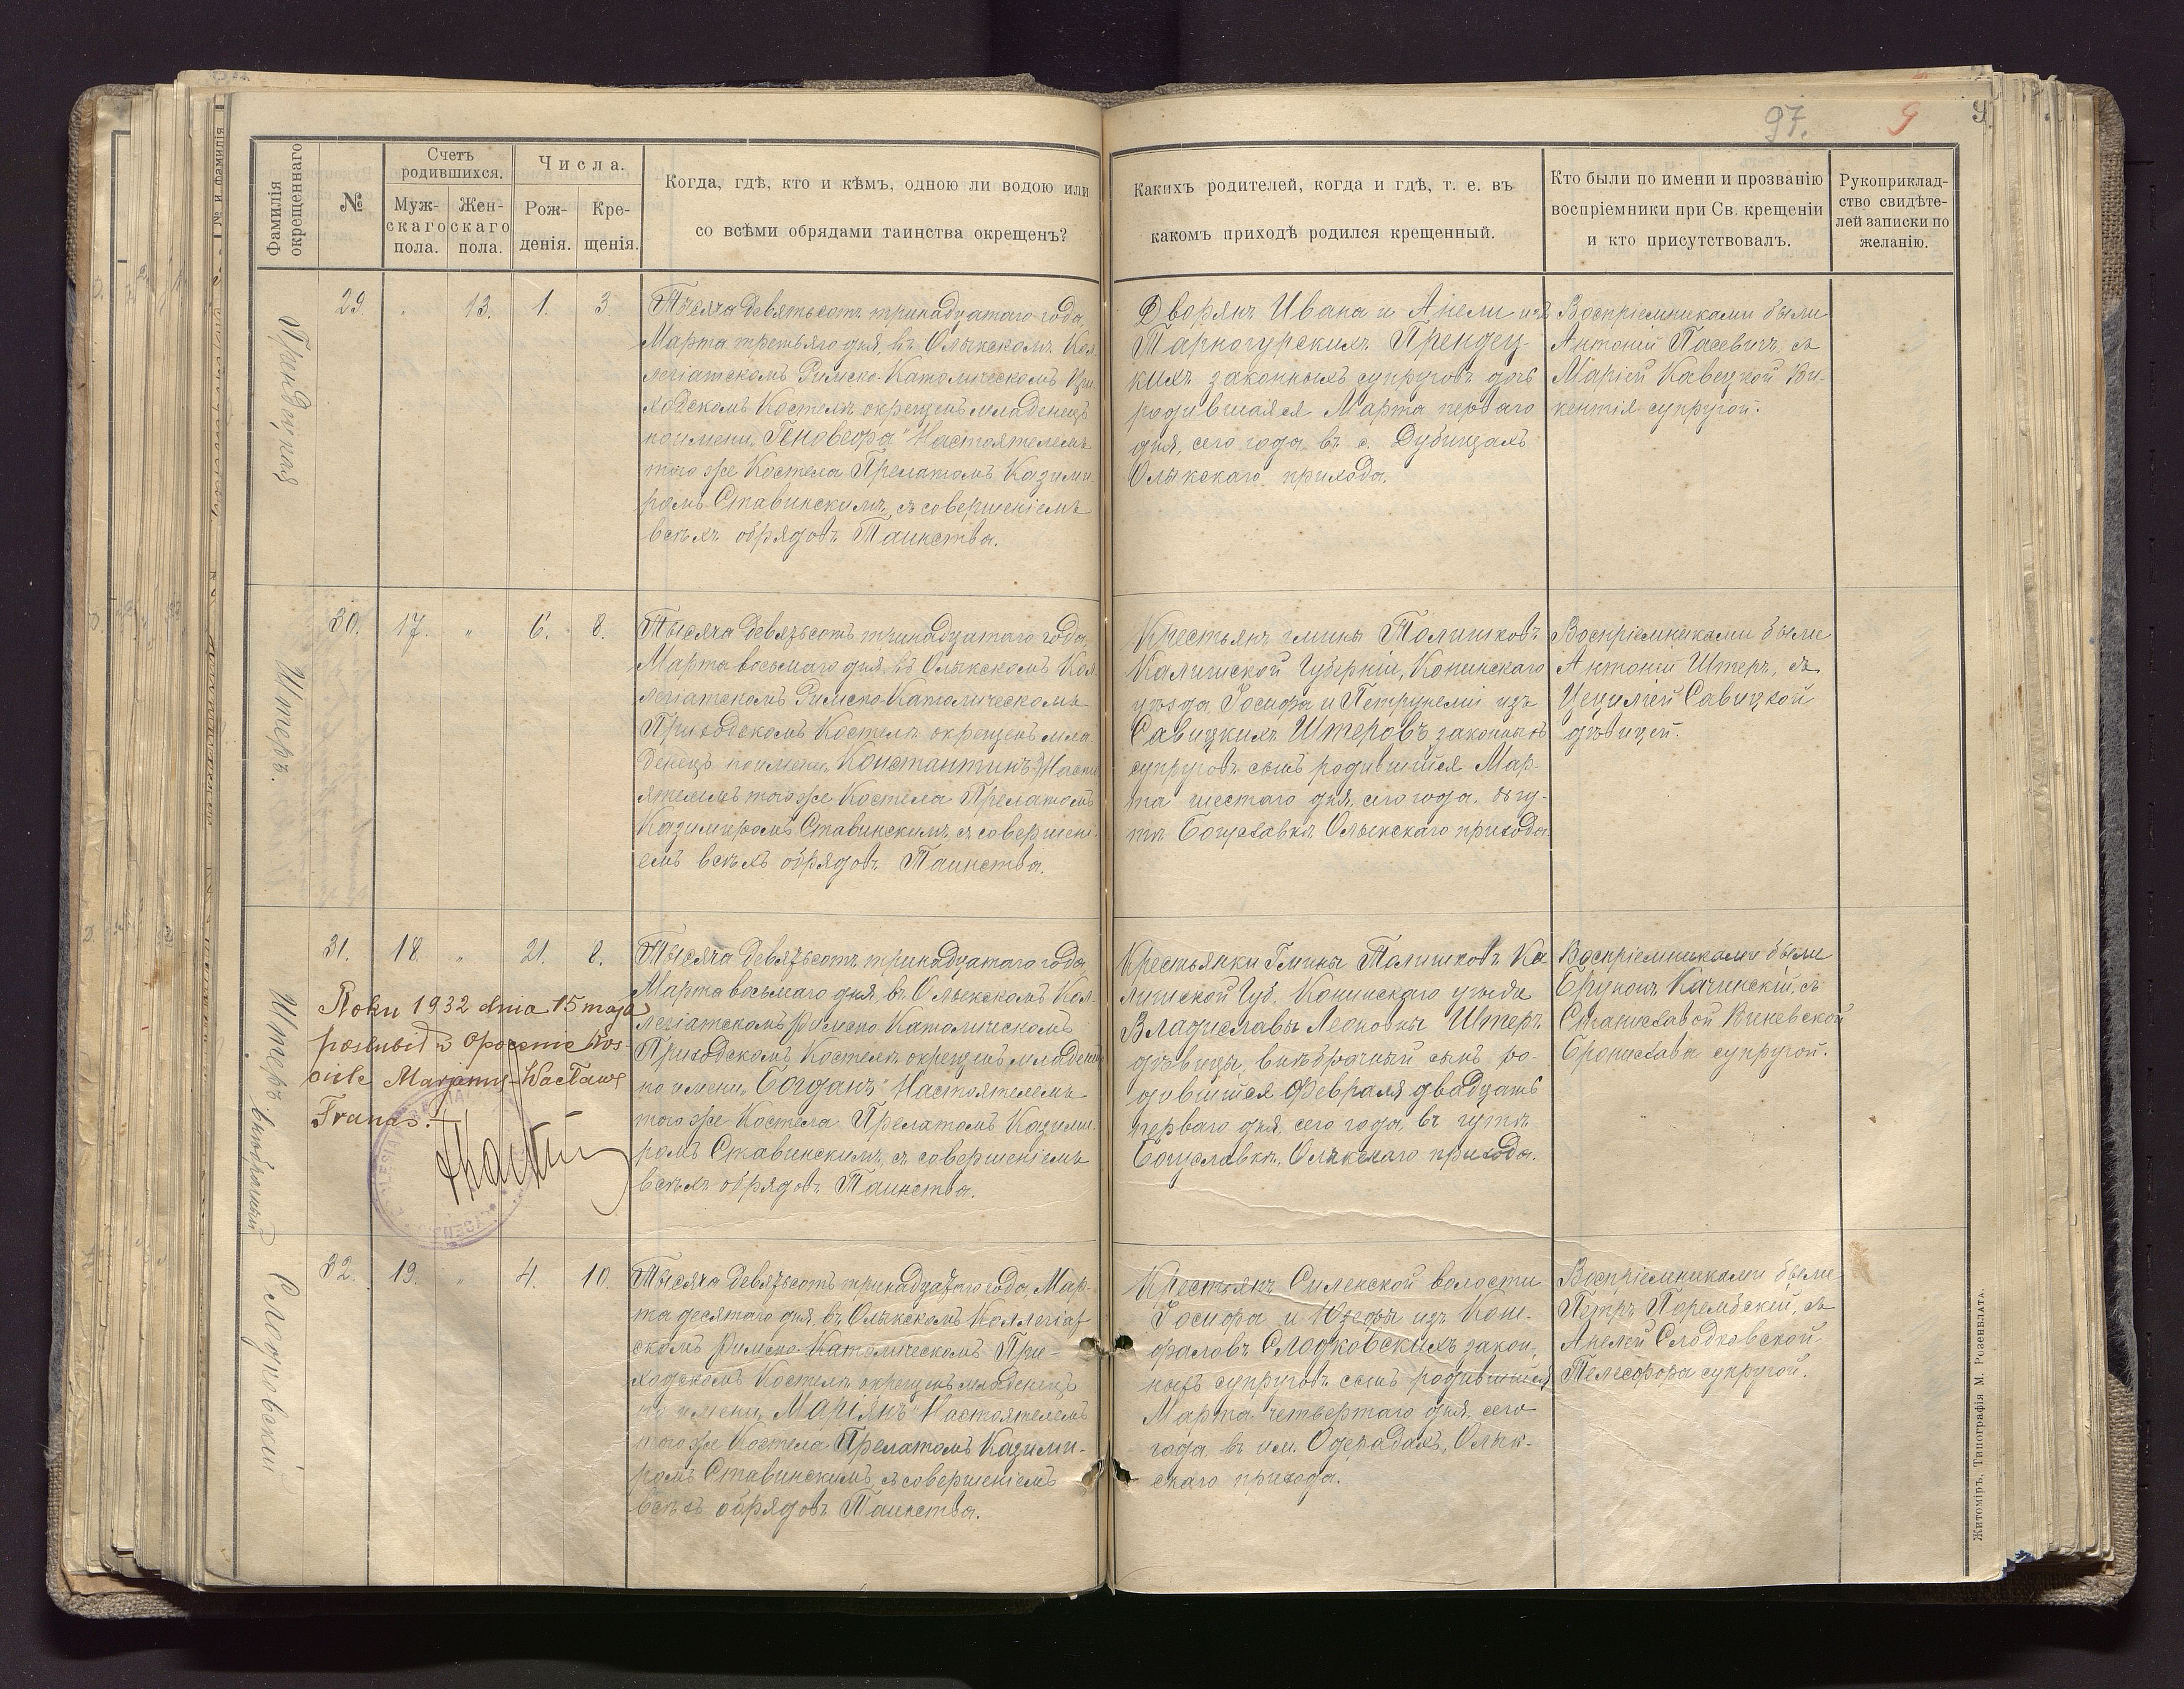 97. 9
Фамилія
окрещеннаго
№
Счетъ
родившихся.
Муж-
скаго
пола.
Жен-
скаго
пола.
Числа.
Рож-
денія.
Кре-
щенія.
Когда, гдѣ, кто и кѣмъ, одною ли водою или
со всѣми обрядами таинства окрещенъ?
Какихъ родителей, когда и гдѣ, т. е. въ
какомъ приходѣ родился крещенный.
Кто были по имени и прозванію
воспріемники при Св. крещеніи
и кто присутствовалъ.
Рукоприклад-
ство свидѣте-
лей записки по
желанію.
29. " 13. 1. 3
Тысяча девятьсотъ тринадцатаго года
Марта третьяго дня, въ Олыкскомъ Кол-
легіатскомъ Римско-Католическомъ При
ходскомъ Костелѣ окрещенъ младенецъ
по имени „Геновефа" Настоятелемъ
того же Костела Прелатомъ Казими
ромъ Ставинскимъ, съ совершеніемъ
всѣхъ обрядовъ Таинства.
Дворянъ Ивана и Анели изъ
Тарногурскихъ Прендец-
кихъ законныхъ супруговъ дочь
родившаяся Марта перваго
дня, сего года, въ с. Дубищахъ
Олыкскаго прихода.
Воспріемниками были
Антоній Пасевичъ, съ
Маріей Кавецкой Ви-
кентія супругой.
Штеръ.
30. 17. " 6. 8.
Тысяча девятьсотъ тринадцатаго года,
Марта восьмаго дня, въ Олыкскомъ Кол
легіатскомъ Римско-Католическомъ
Приходскомъ Костелѣ окрещенъ мла
денецъ по имени „Константинъ" Насто
ятелемъ того же Костела Прелатомъ
Казимиромъ Ставинскимъ съ совершені-
емъ всѣхъ обрядовъ Таинства.
Крестьянъ гмины Толишковъ
Калишской Губерніи, Конинскаго
уѣзда, Іосифа и Петрунели изъ
Савицкихъ Штеровъ законныхъ
супруговъ сынъ родившійся Мар-
та шестаго дня, сего года, въ гу-
тѣ Богуславкѣ Олыкскаго прихода
Воспріемниками были
Антоній Штеръ, съ
Цецилией Савицкой
дѣвицей.
Штеръ внѣбрачный
31. 18. " 21. 8.
Roku 1932 dnia 15 maja
poślubił w Opocznie Koś-
ciele Marjannę-Wacławę
Franas.
Тысяча девятьсотъ тринадцатаго года
Марта восьмаго дня, въ Олыкскомъ Кол-
легіатскомъ Римско Католическомъ
Приходскомъ Костелѣ окрещенъ младенецъ
по имени „Богданъ" Настоятелемъ
того же Костела Прелатомъ Казими-
ромъ Ставинскимъ, съ совершеніемъ
всѣхъ обрядовъ Таинства.
Крестьянки Гмины Толишковъ Ка-
лишской Губ. Конинскаго уѣзда
Владиславы Леоновны Штеръ
дѣвицы, внѣбрачный сынъ ро-
дившійся Февраля двадцать
перваго дня, сего года, въ гутѣ
Богуславкѣ, Олыкскаго прихода.
Воспріемниками были
Брунонъ Качинскій, съ
Станиславой Янкевской
Бронислава супругой.
Слодковскій
32. 19. " 4. 10.
Тысяча девятьсотъ тринадцатаго года, Мар-
та десятаго дня, въ Олыкскомъ Коллегіат
скомъ Римско-Католическомъ При-
ходскомъ Костелѣ окрещенъ младенецъ
по имени „Маріянъ" Настоятелемъ
того же Костела Прелатомъ Казими-
ромъ Ставинскимъ съ совершеніемъ
всѣхъ обрядовъ Таинства.
Крестьянъ Силенской волости
Іосифа и Юзефы изъ Кон-
фаловъ Слодковскихъ закон-
ныхъ супруговъ сынъ родившійся
Марта четвертаго дня, сего
года, въ им. Одерадахъ, Олык-
скаго прихода.
Воспріемниками были
Петръ Порембскій, съ
Анелей Слодковской
Телесфора супругой.
Житоміръ, Типографія М. Розенблата.